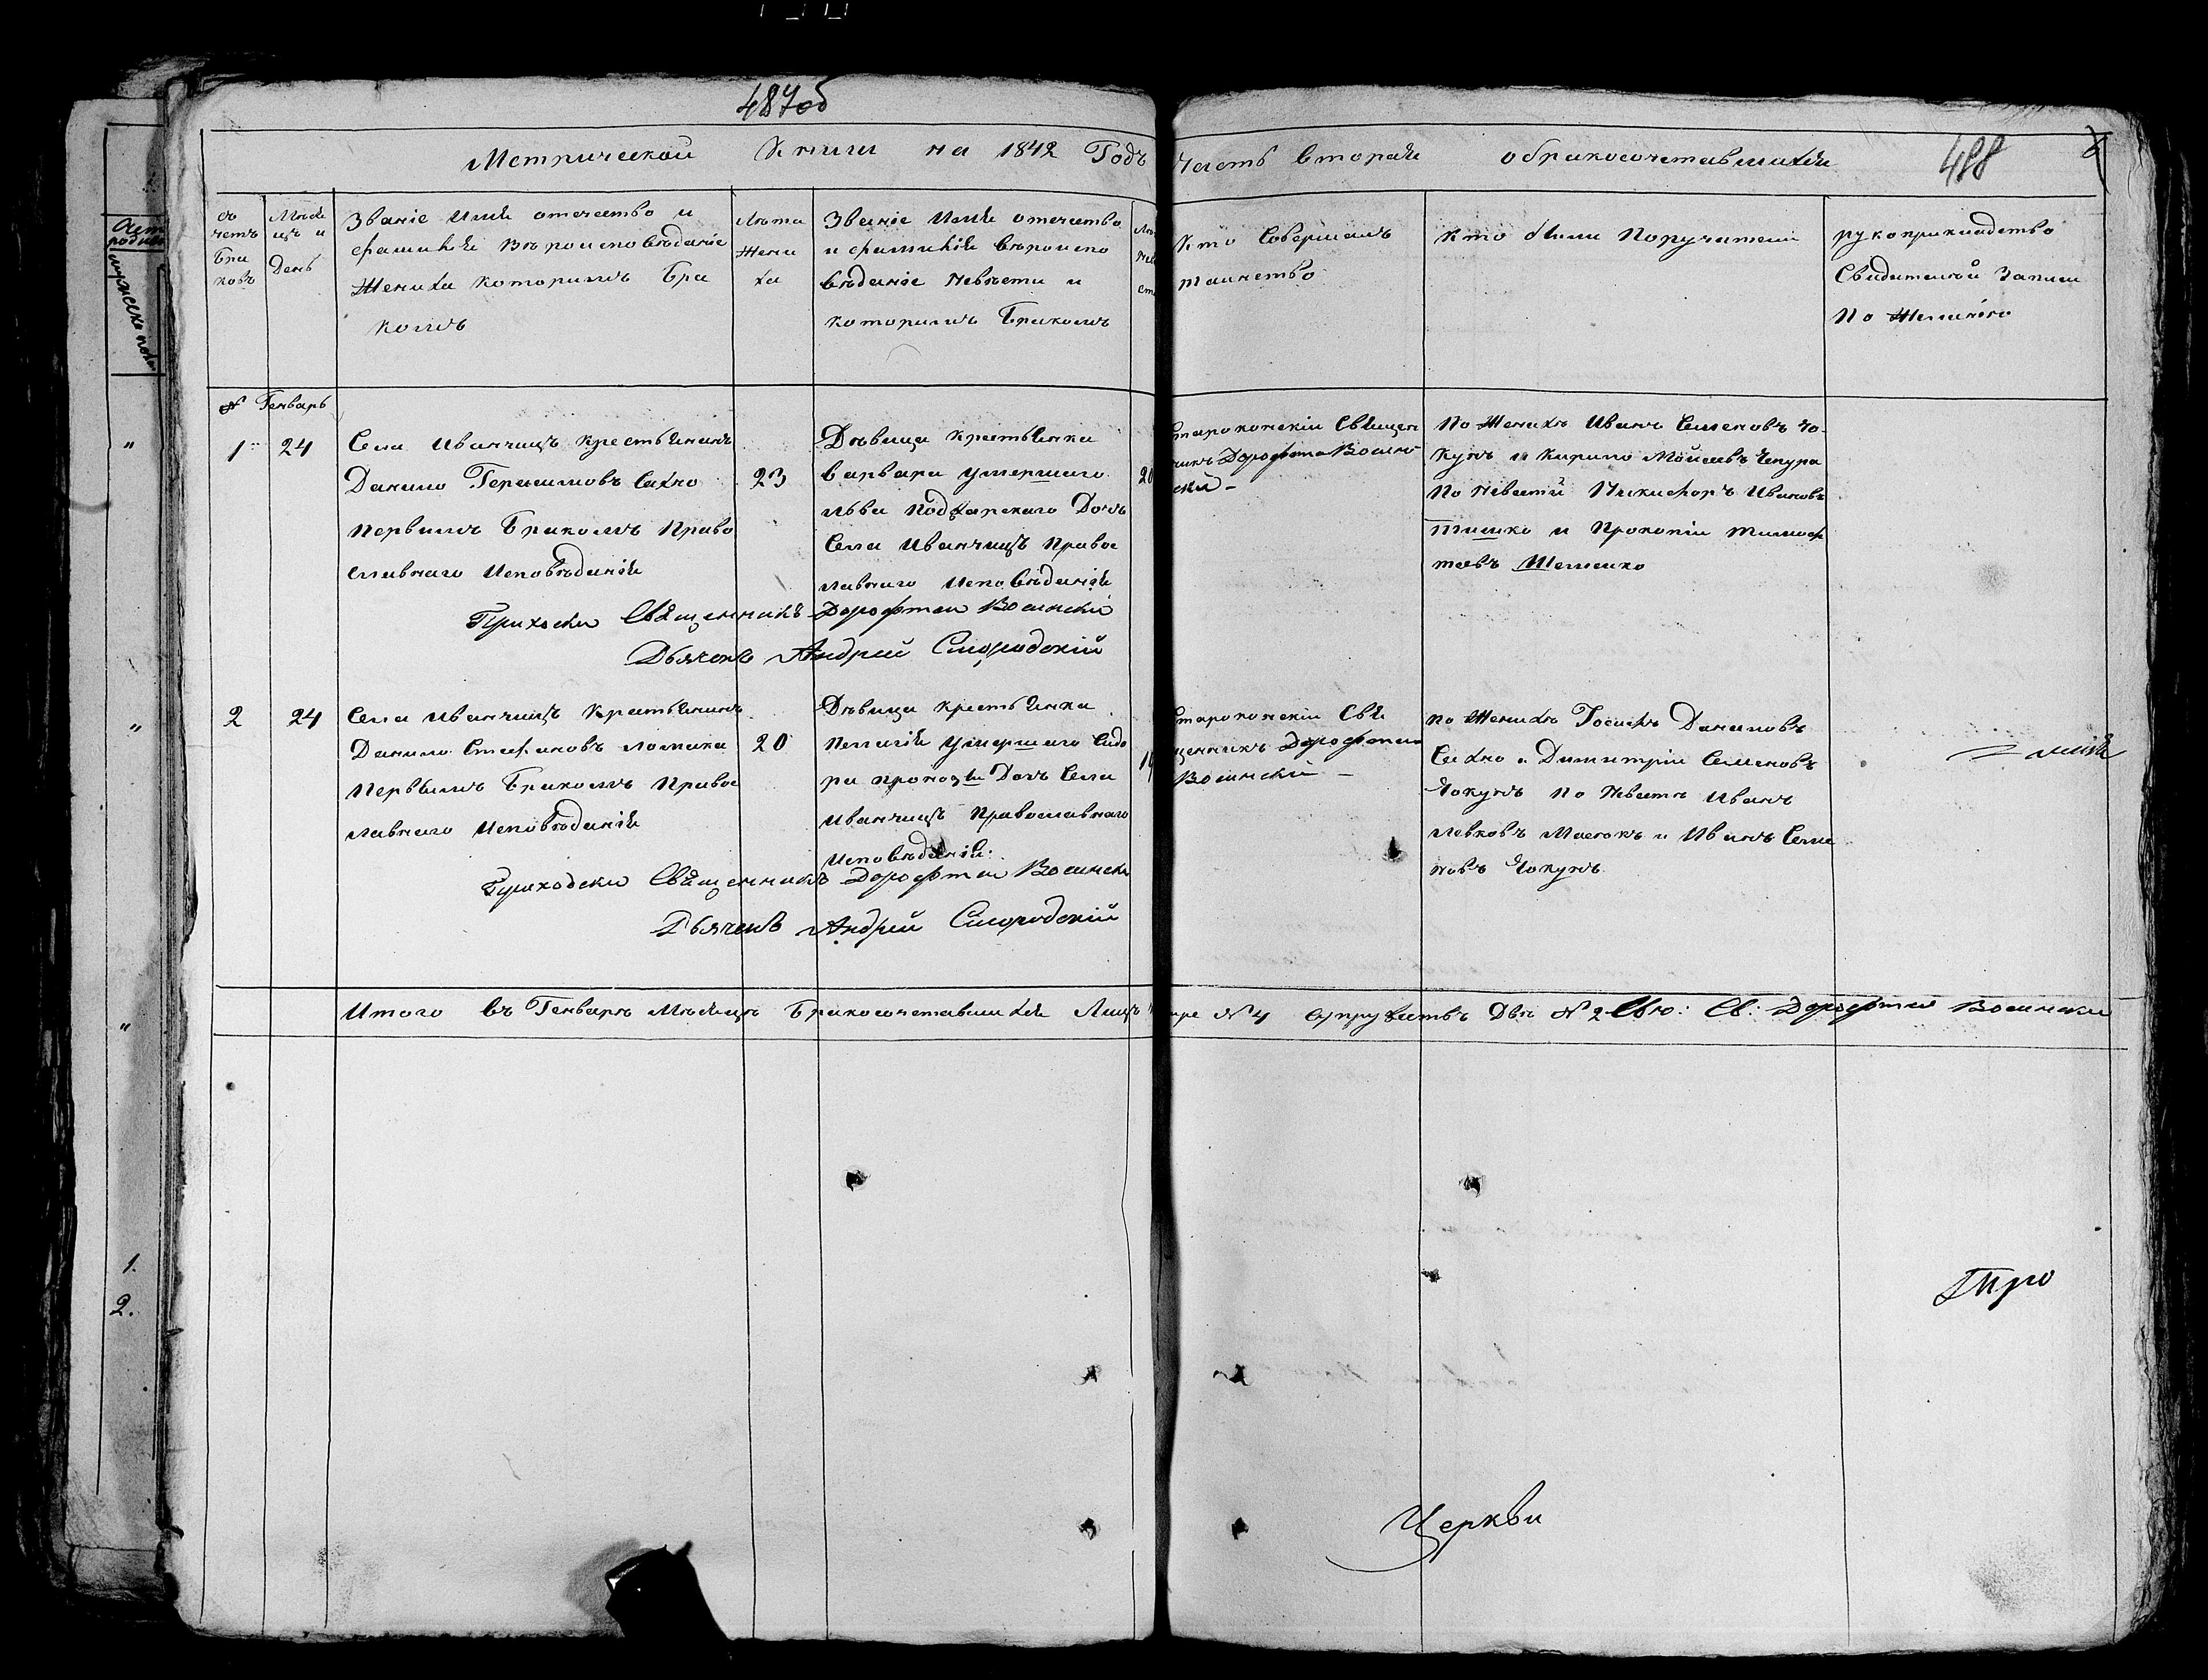 487об
Метрической Книги на 1842 Годъ Часть вторая обракосочетавшихся
488
счетъ
бра
ковъ
Мѣся
цъ и
День
Званіе Имя отечество и
фамилія вѣроисповѣданіе
Жениха которимъ бра
комъ
Лѣта
Жени
ха
Званіе Имя отечество
и фамилія вѣроиспо
вѣданіе невѣсти и
которимъ бракомъ
Кто Совершалъ
таинство
Кто были Поручатели
рукоприкладство
Свидителей Записи
По Желанію
№ Генварь
1 24
Села Иванчицъ крестьянинъ
Данило Герасимовъ Сахно
Первимъ бракомъ Право
славнаго Исповѣданія
23
Дѣвица крестьянка
варвара умершаго
Львы Подгарскаго Дочь
Села Иванчицъ Правос
лавнаго Исповѣданія
20
Староконскіи Священ
никъ Дорофтеи Волинс
кій
По Женихѣ Иванъ Семеновъ Чо
кунъ и Кирило Мойсеевъ Чепура
По Невѣстѣ Никифоръ Ивановъ
Тишко и Прокопіи Тимоф
теевъ Шемпко
Приходски Священникъ Дорофтеи Волински
Дьячокъ Андрей Смородскій
2 24
Села Иванчицъ Крестьянинъ
Данило Стефановъ Ломака
Первымъ бракомъ Правос
лавнаго Исповѣданія
20
Дѣвица крестьянка
Пелагія умершаго Сидо
ра Дочь Села
Иванчицъ Православнаго
Исповѣданія
Староконскіи Свя
щенникъ Дорофтеи
Волинскіи
по Женихѣ Госифъ Даниловъ
Сахно и Димитріи Семеновъ
Чокунъ по Невѣстѣ Иванъ
Левковъ Масюкъ и Иванъ Семе
новъ Чокунъ
Приходски Священникъ Дорофтеи Волински
Дьячокъ Андрей Смородскій
Итого въ Генварѣ Мѣсяцѣ бракосочетавшихся Лицъ №4 супружествъ Двѣ №2 Св: Дорофтеи Волински
1.
2.
Церкви